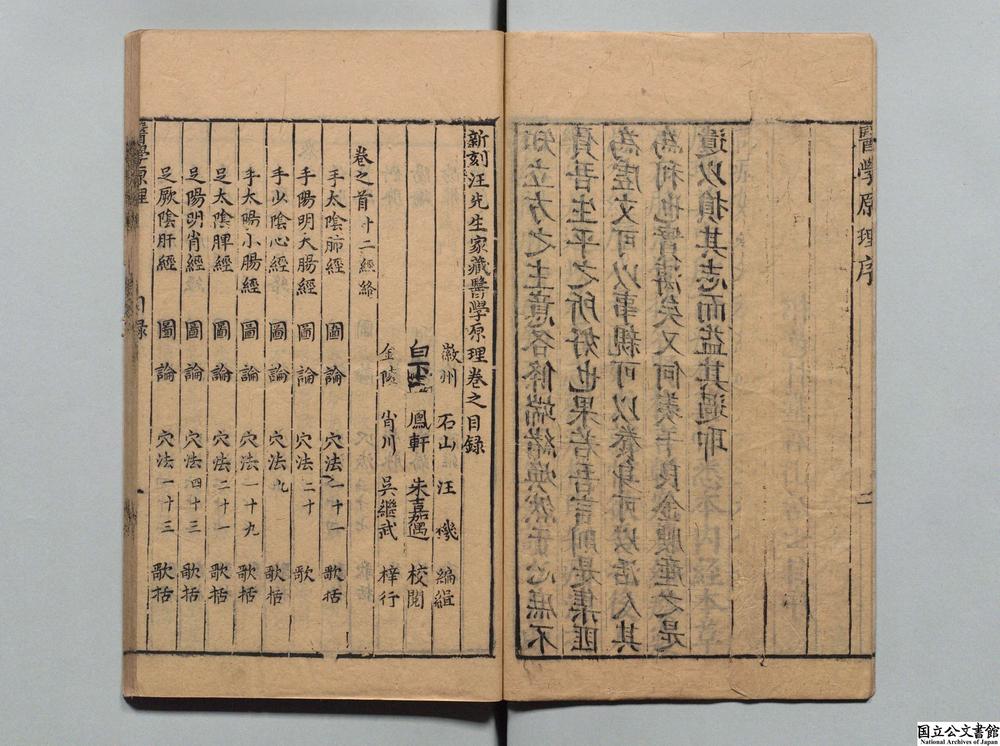 醫學原理序
二
知立方之主意各條端緒煥然于心庶不
負吾生平之所好也果若吾言則是集匪
為虛文可以事親可以養身可以活人其
為利也豈淺矣又何羨于良金腴產之是
遺以損其志而益其過耶
新刻汪先生家藏醫學原理卷之目錄
徽州 石山 汪 機 編緝
白下 鳳軒 朱嘉遇 校閱
金陵 肖川 吳繼武 梓行
卷之首 十二經絡
手太陰肺經 圖 論 穴法一十一 歌括
手陽明大腸經 圖 論 穴法二十 歌
手少陰心經 圖 論 穴法九 歌括
手太陽小腸經 圖 論 穴法一十九 歌括
足太陰脾經 圖 論 穴法二十一 歌括
足陽明胃經 圖 論 穴法四十三 歌括
足厥陰肝經 圖 論 穴法一十三 歌括
醫學原理 目錄 一
国立公文書館
National Archives of Japan